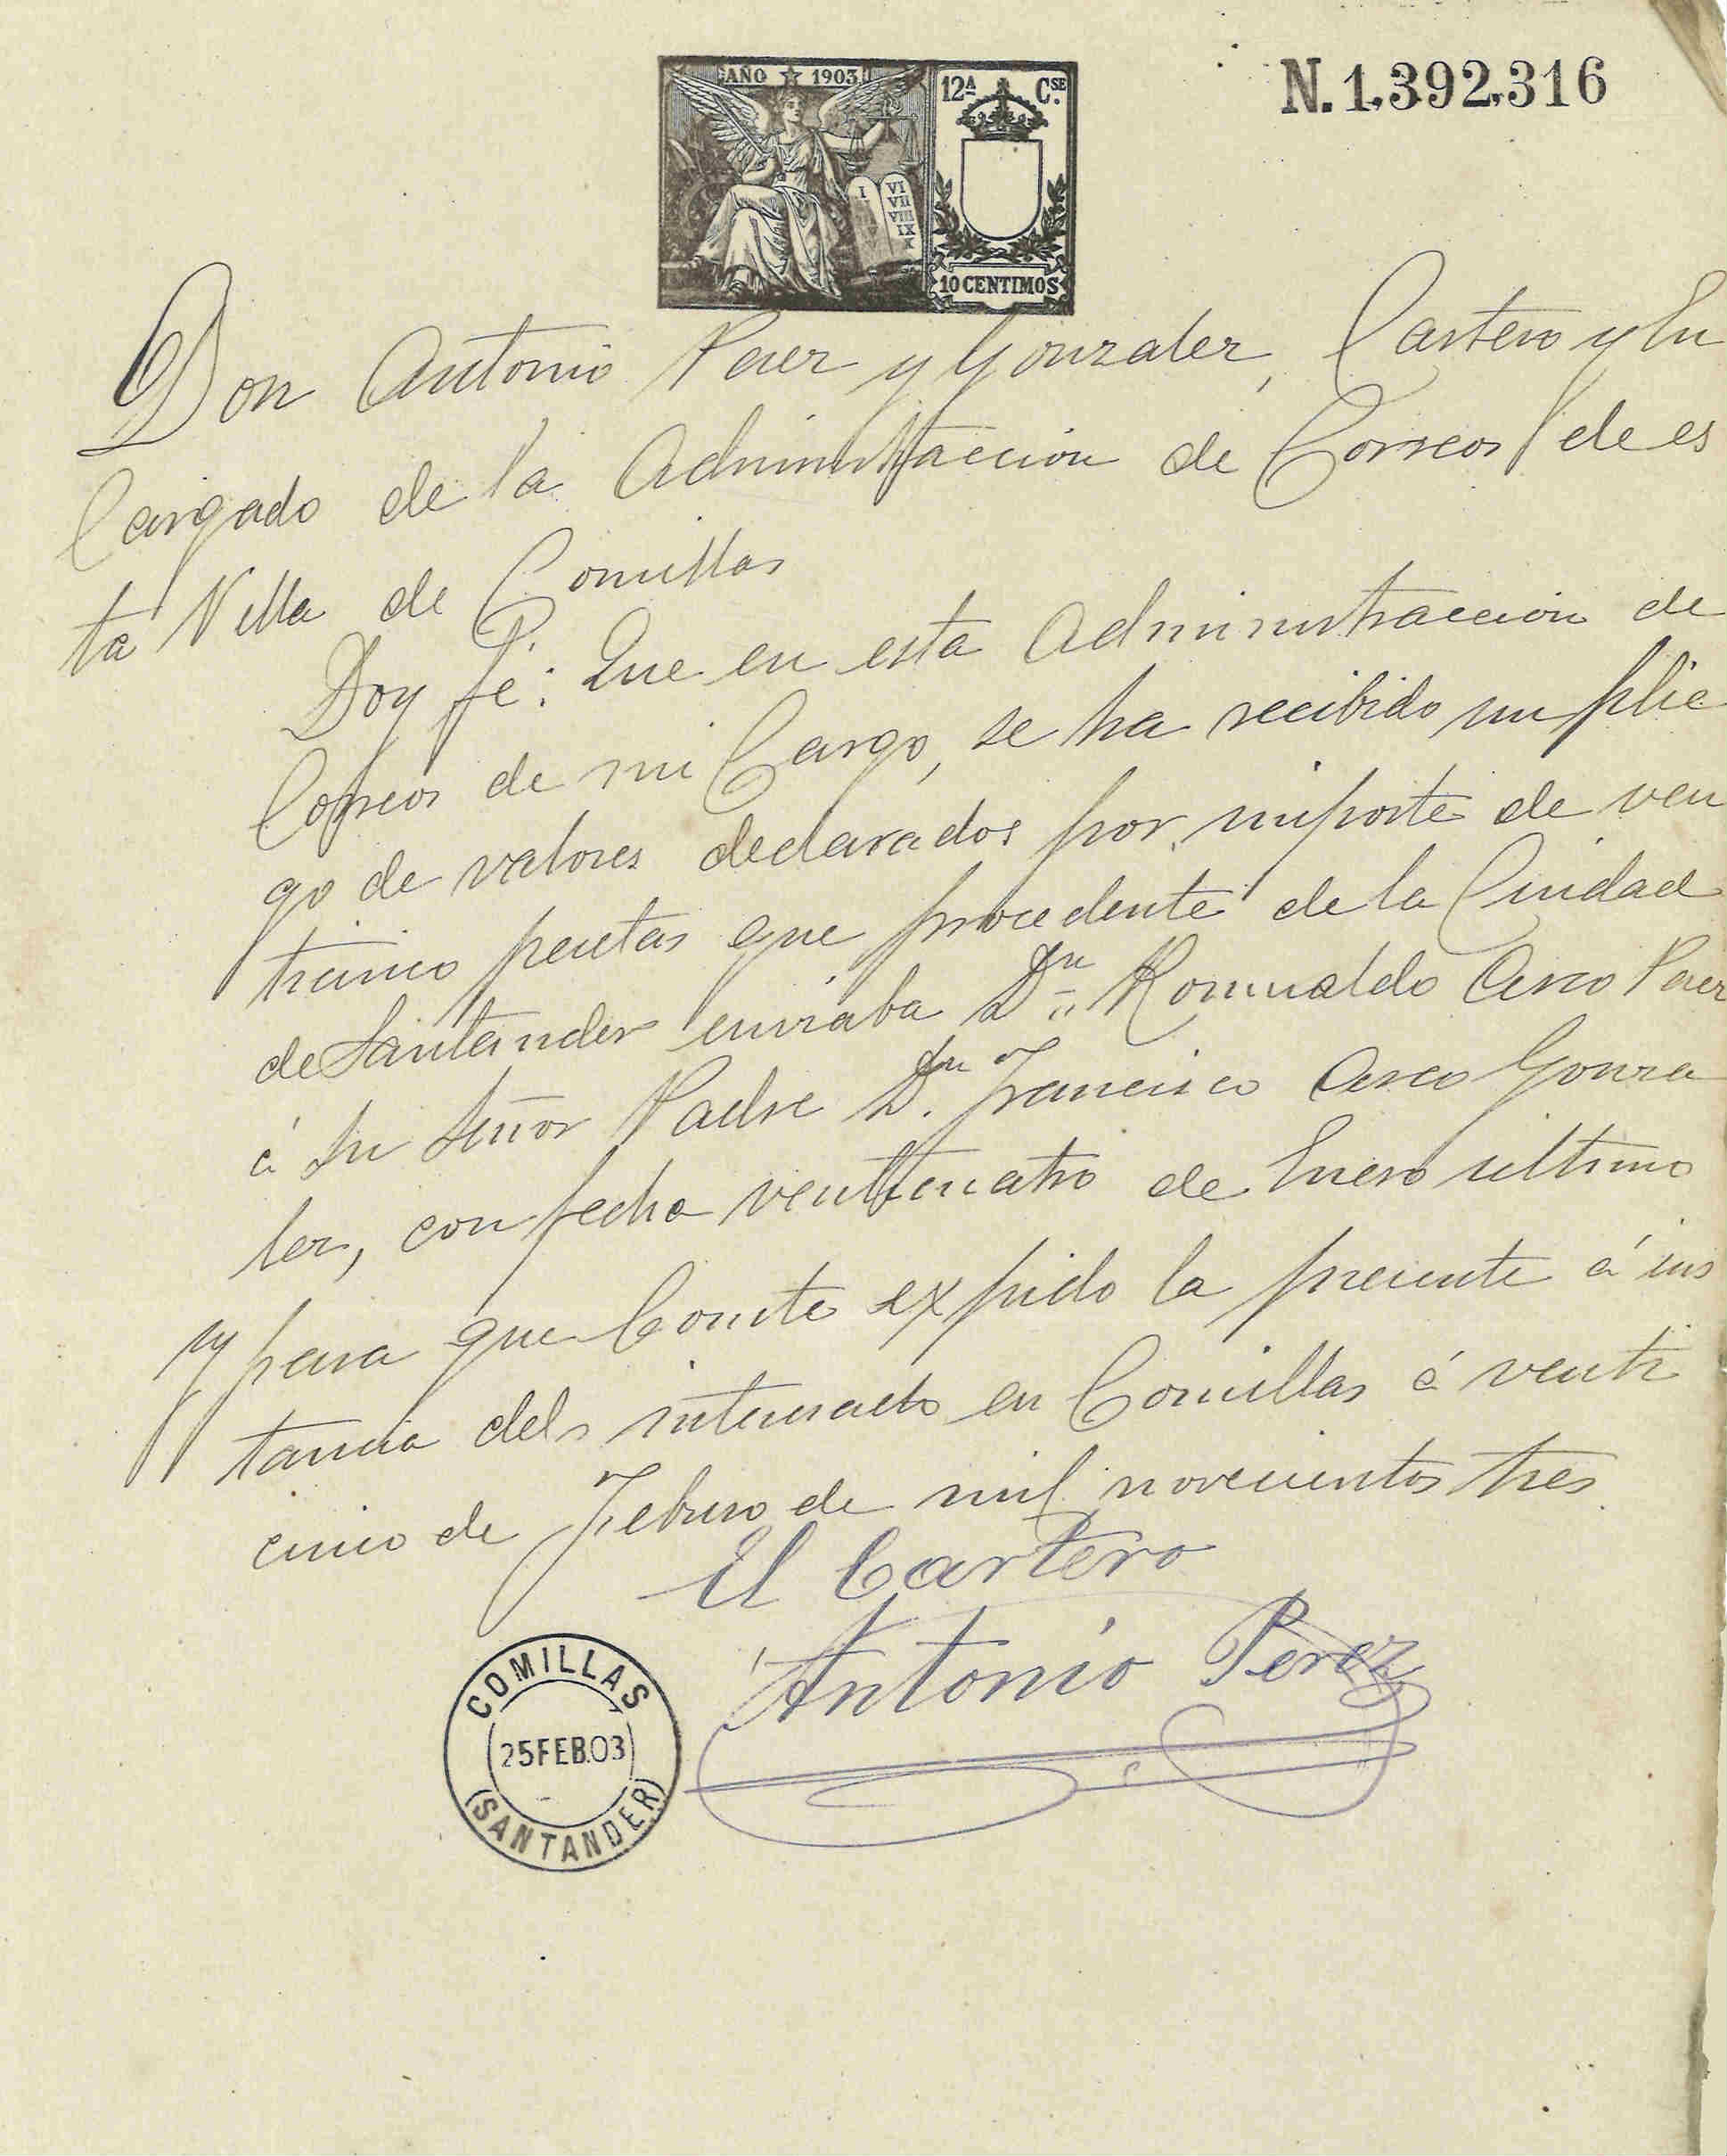 AÑO 1903
12ª Cse.
I VI VII VIII IX X
10 CENTIMOS
N.1.392.316
Don Antonio Perez y Gonzalez, Cartero y En
Cargado de la Administraccion de Correos de es
ta Villa de Comillas
Doy fé: Que en esta Administraccion de
Correos de mi Cargo, se ha recibido un plie
go de valores declarados por importe de ven
ticinco pesetas que procedente de la Ciudad
de Santander enviaba Dn. Romualdo Asco Perez
á su Señor Padre Dn. Francisco Asco Gonza
lez, con fecha venticuatro de Enero ultimo
y para que Conste expido la presente á ins
tancia del interesado en Comillas á venti
cinco de Febrero de mil novecientos tres.
El Cartero
Antonio Perez
COMILLAS
25 FEB.03
(SANTANDER)